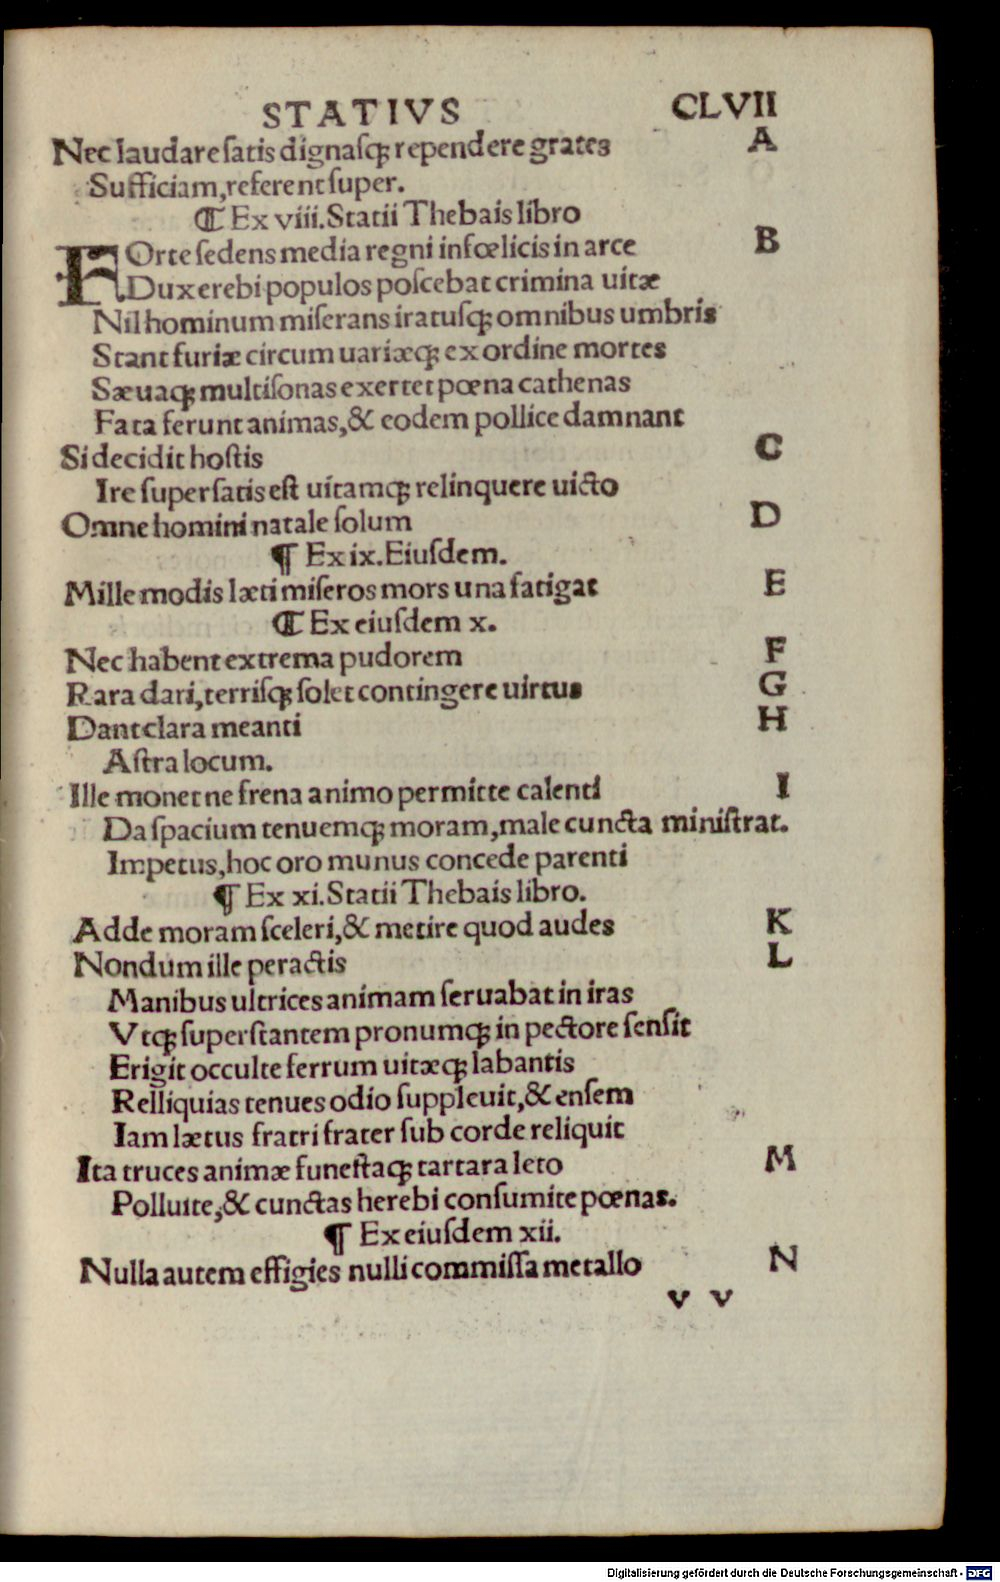 STATIVS CLVII
Nec laudare satis dignasqꝫ rependere grates A
Sufficiam, referent super.
¶ Ex viii. Statii Thebais libro
FOrte sedens media regni infœlicis in arce B
Dux erebi populos poscebat crimina uitæ
Nil hominum miserans iratusqꝫ omnibus umbris
Stant furiæ circum uariæqꝫ ex ordine mortes
Sæuaqꝫ multisonas exertet pœna cathenas
Fata ferunt animas, & eodem pollice damnant
Si decidit hostis C
Ire super satis est uitamqꝫ relinquere uicto
Omne homini natale solum D
¶ Ex ix. Eiusdem.
Mille modis læti miseros mors una fatigat E
¶ Ex eiusdem x.
Nec habent extrema pudorem F
Rara dari, terrisqꝫ solet contingere uirtus G
Dant clara meanti H
Astra locum.
Ille monet ne frena animo permitte calenti I
Da spacium tenuemqꝫ moram, male cuncta ministrat.
Impetus, hoc oro munus concede parenti
¶ Ex xi. Statii Thebais libro.
Adde moram sceleri, & metire quod audes K
Nondum ille peractis L
Manibus ultrices animam seruabat in iras
Vtqꝫ superstantem pronumqꝫ in pectore sensit
Erigit occulte ferrum uitæqꝫ labantis
Relliquias tenues odio suppleuit, & ensem
Iam lætus fratri frater sub corde reliquit
Ita truces animæ funestaqꝫ tartara leto M
Polluite, & cunctas herebi consumite pœnas.
¶ Ex eiusdem xii.
Nulla autem effigies nulli commissa metallo N
v v
Digitalisierung gefördert durch die Deutsche Forschungsgemeinschaft - DFG